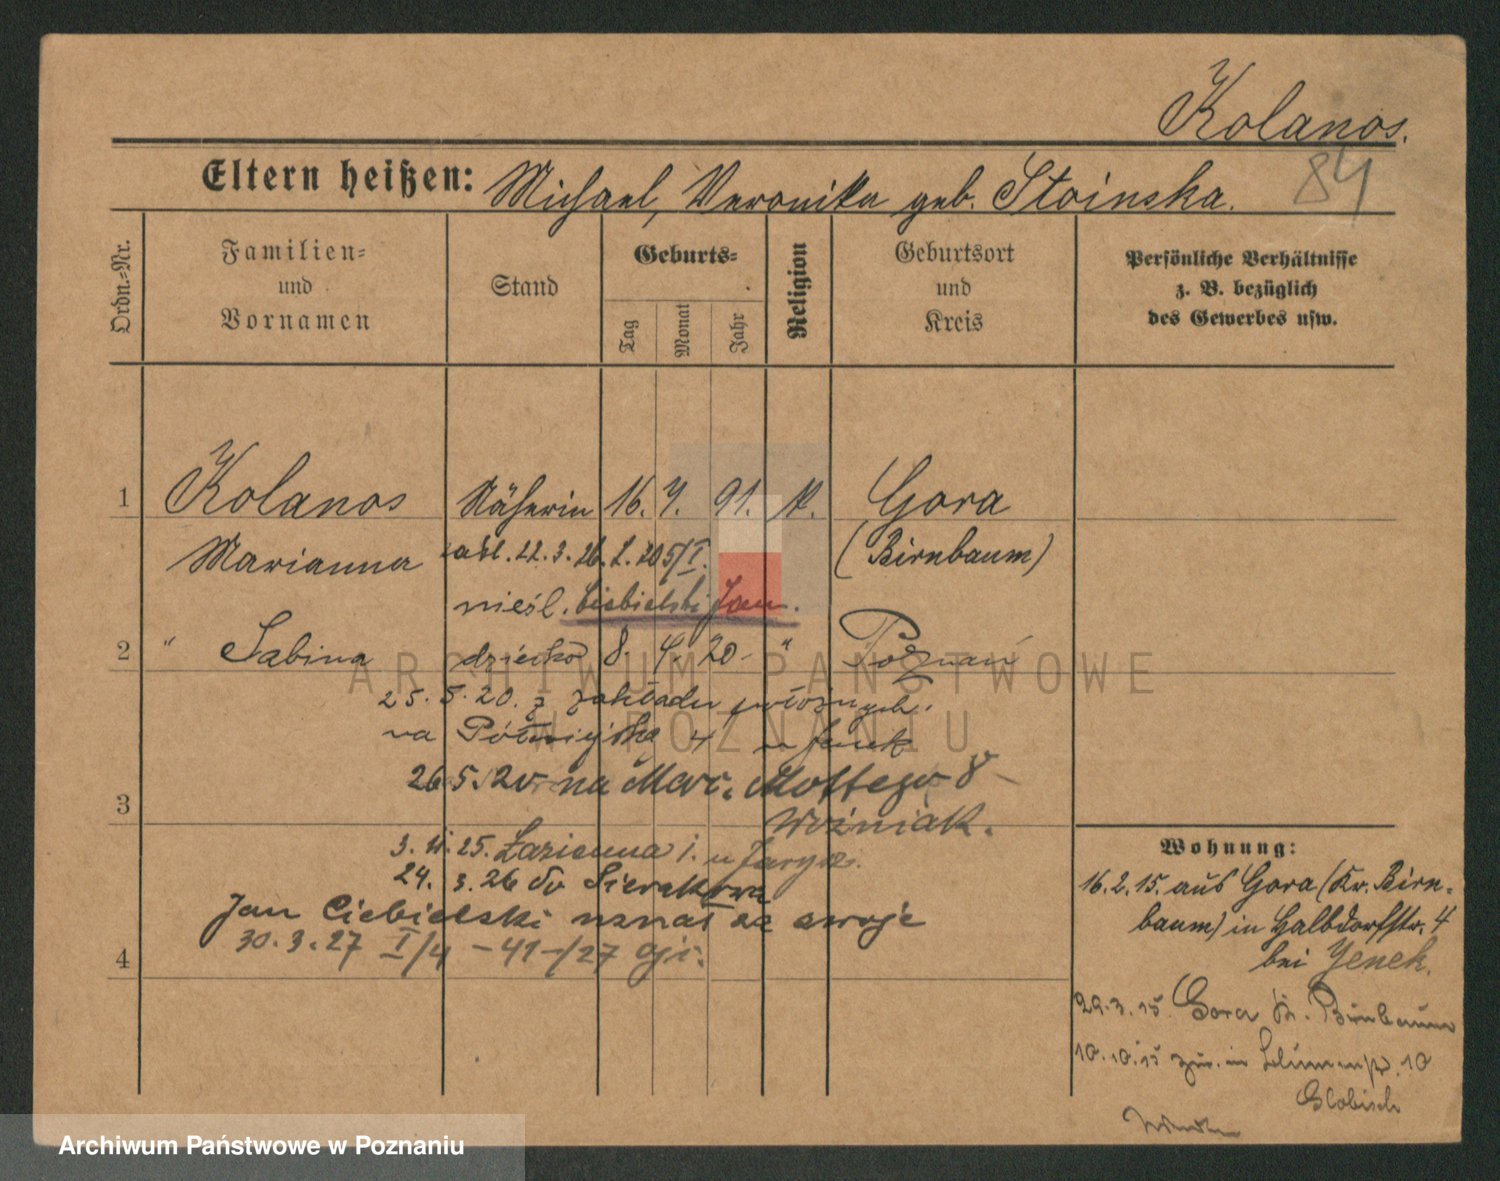 Kolanos.
84
Eltern heißen: Michael, Veronika geb. Stoinska.
Ordn.-Nr.
Familien-
und
Vornamen
Stand
Geburts-
Tag
Monat
Jahr
Religion
Geburtsort
und
Kreis
Persönliche Verhältnisse
z. B. bezüglich
des Gewerbes usw.
1 Kolanos Näherin 16. 7. 91. k. Gora
Marianna 22.3.26 (Birnbaum)
nieśl. Ciebielski Jan.
2 " Sabina dziecko 8. 4. 20 " Poznań
25.5.20. z zakładu
na 4 u Jenek
26.5.20 na Marc. Mottego 8
3
Woźniak.
3. 25. Łazienna 1. u
24. 3.26 do Sierakowa
Jan Ciebielski uznał za swoje
30.3.27 I/4 - 41 - /27
4
Wohnung:
16.2.15. aus Gora (Kr. Birn-
baum) in Halbdorfstr. 4
bei Jenek.
29.3.15. Gora Kr. Birnbaum
10.10.15 in 10
Globisch
ARCHIWUM PAŃSTWOWE
W POZNANIU
Archiwum Państwowe w Poznaniu